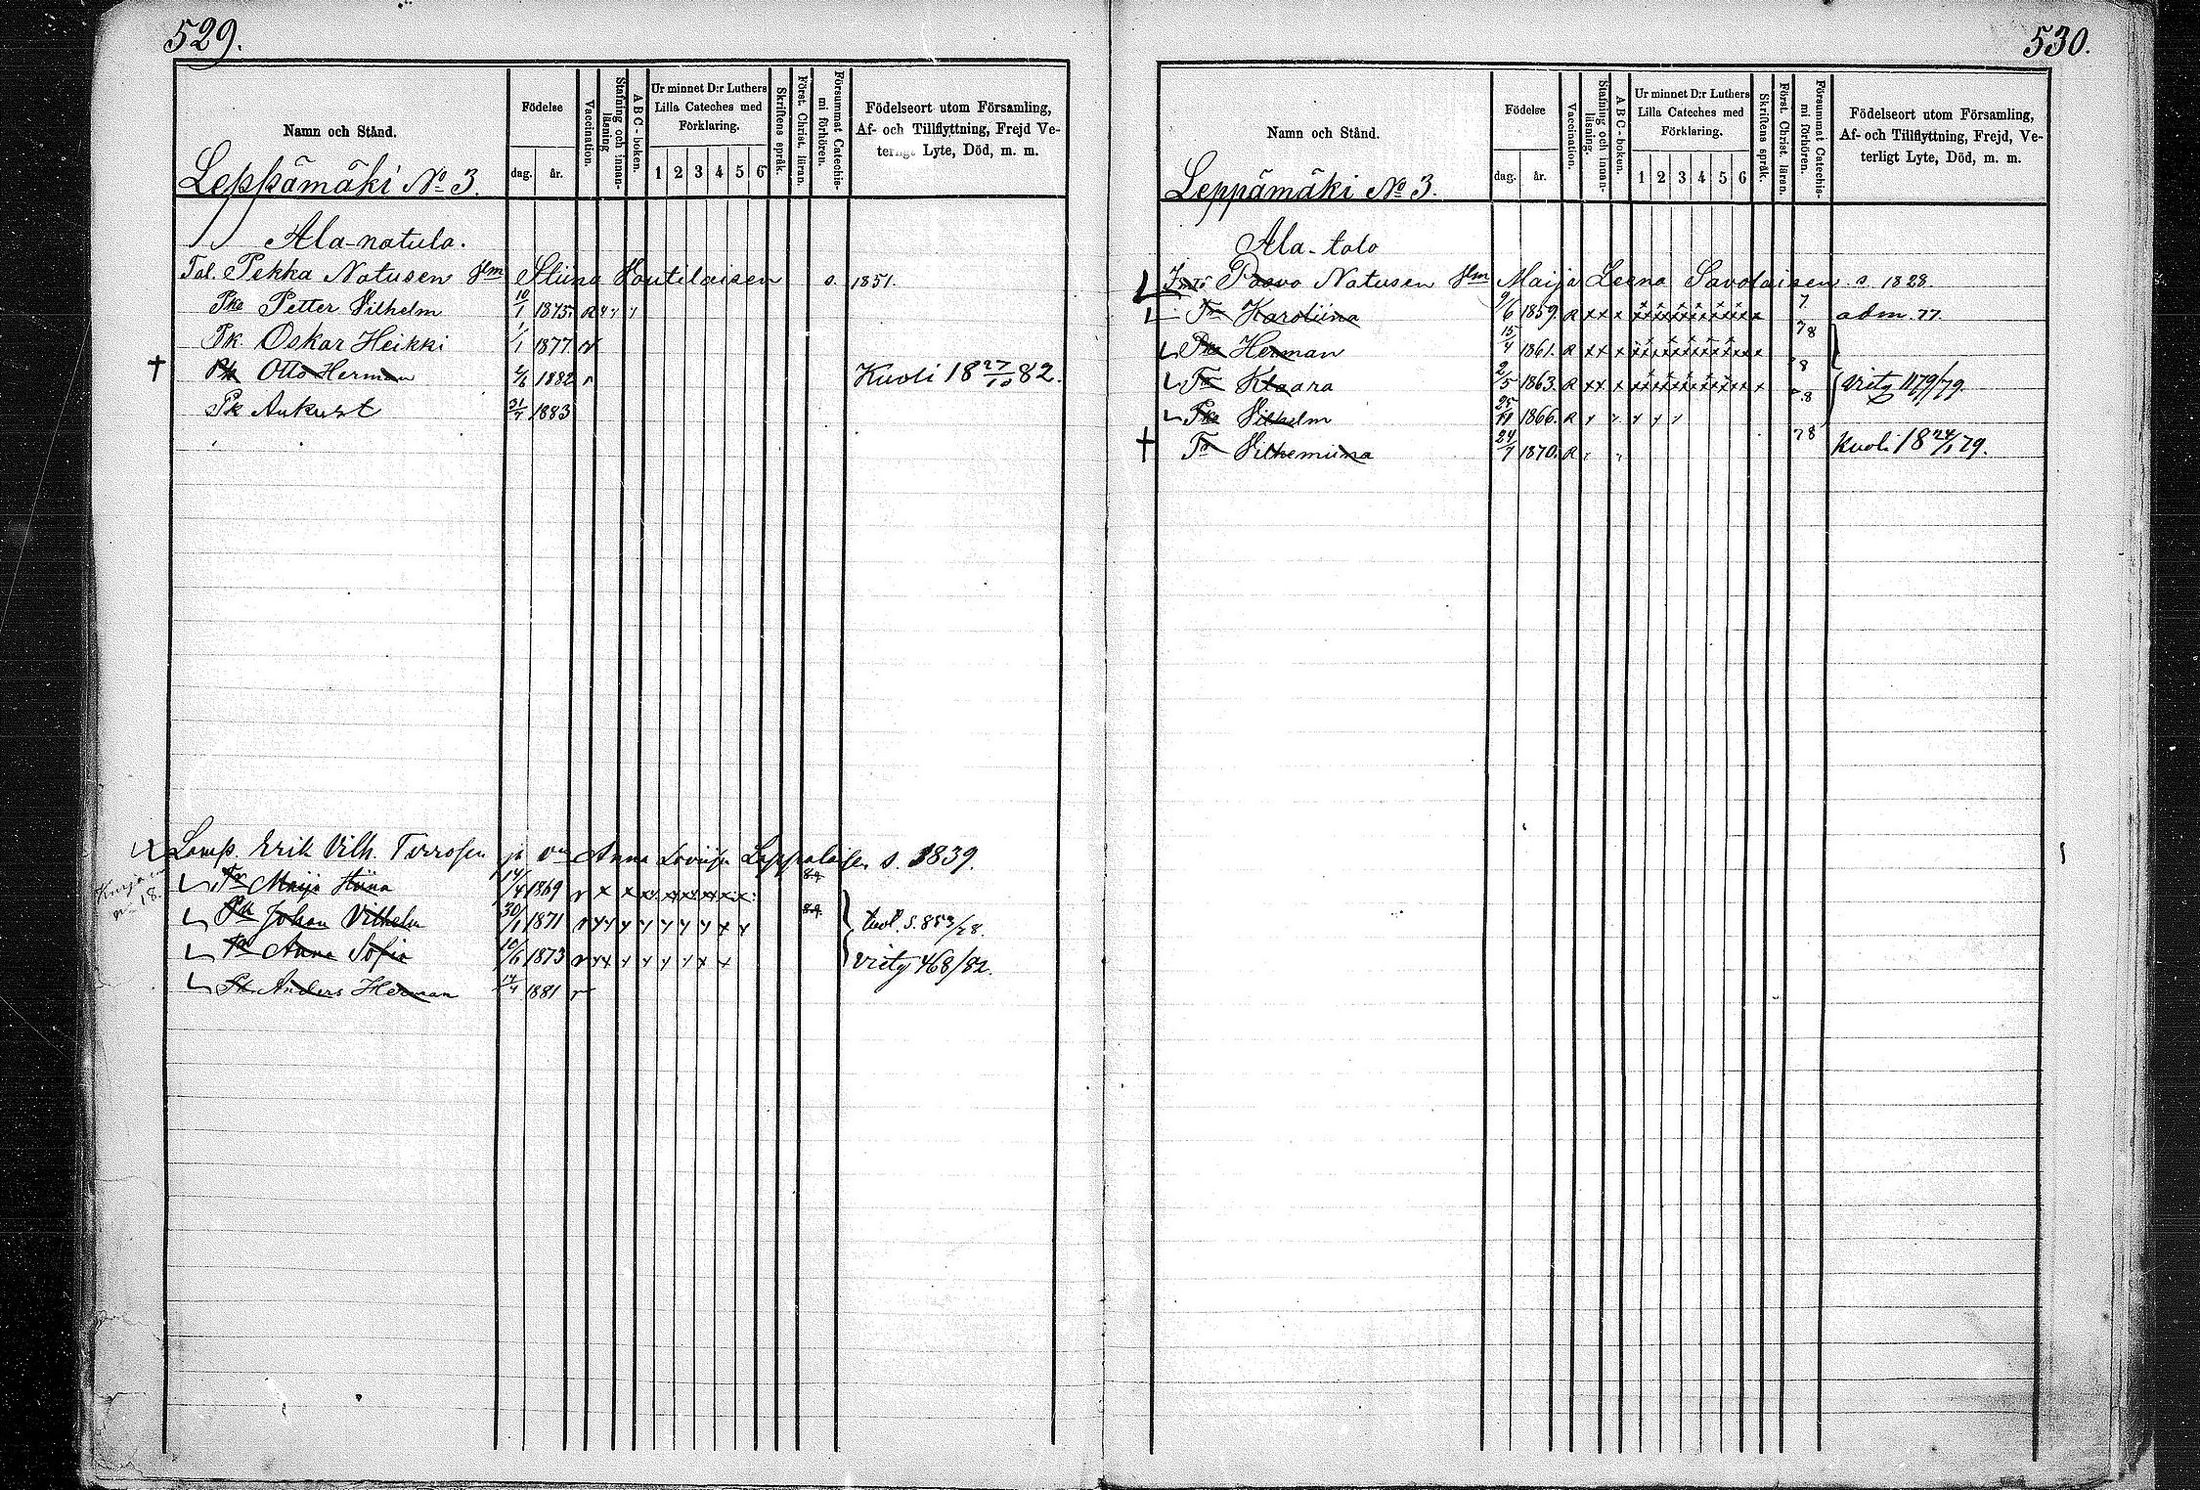 529.
Namn och Stånd.
Födelse
dag. år.
Vaccination.
Stafning och innan-läsning
ABC-boken.
Ur minnet D:r Luthers
Lilla Cateches med
Förklaring.
1 2 3 4 5 6
Skriftens språk.
Först. Christ. läran.
Försummat Catechis-mi förhören.
Födelseort utom Församling,
Af- och Tillflyttning, Frejd Ve-
terligt Lyte, Död, m. m.
Leppämäki No 3.
Ala-natula.
Tal. Pekka Natusen Hm Stiina Voutilaisen s. 1851.
Pka Petter Vilhelm 10/1 1875. R
Pk Oskar Heikki 1/1 1877
† Pk Otto Herman 1882 Kuoli 18 27/10 82.
Pk Aukust 31/7 1883
Lamp. Erik Vilh. Tirrosen ja Anna Loviisa Leppäläisen s. 1839.
Tr Maija Stiina 14/4 1869
Pk Johan Vilhelm 30/1 1871 s. 853/
Tr Anna Sofia 10/6 1873 viety 468/82.
Pk Anders Herman 1881
530.
Namn och Stånd.
Födelse
dag. år.
Vaccination.
Stafning och innan-läsning.
ABC-boken.
Ur minnet D:r Luthers
Lilla Cateches med
Förklaring.
1 2 3 4 5 6
Skriftens språk.
Först. Christ. läran.
Försummat Catechis-mi förhören.
Födelseort utom Församling,
Af- och Tillflyttning, Frejd, Ve-
terligt Lyte, Död, m. m.
Leppämäki No 3.
Ala-talo
Paavo Natusen Hm Maija Leena Savolaisen s. 1828.
Tr Karoliina 9/6 1859. R x x x 7 adm. 77
Pka Herman 15/4 1861. R x x x 78
Tr Klaara 2/5 1863. R x x x 8 Viety 1179/79
Pka Vilhelm 25/11 1866. R 8
† Tr Vilhemiina 24/7 1870. R 78 Kuoli 18 24/1 79.